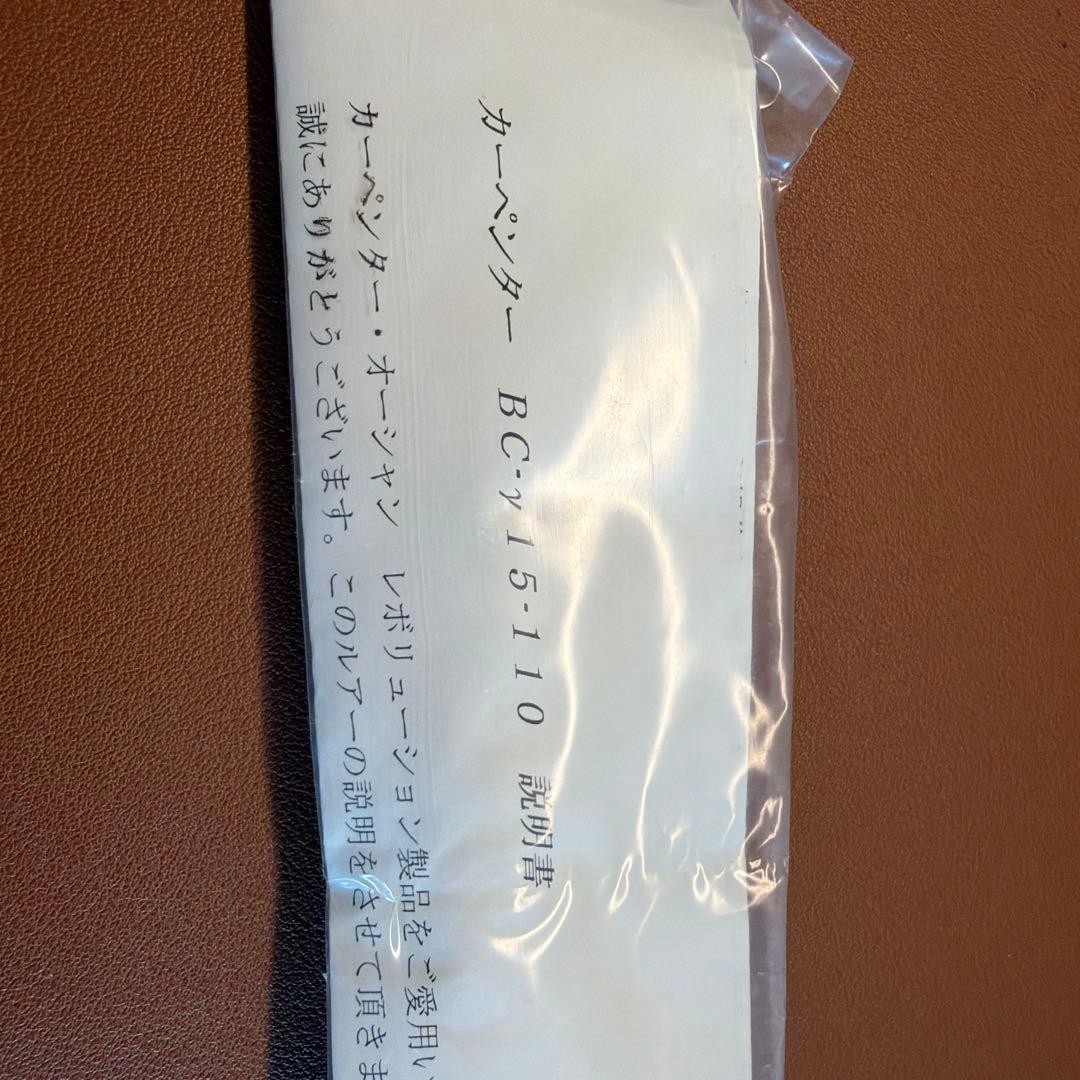 カーペンター BC-γ15-110 説明書
カーペンター・オーシャン レボリューション製品をご愛用い
誠にありがとうございます。このルアーの説明をさせて頂きま